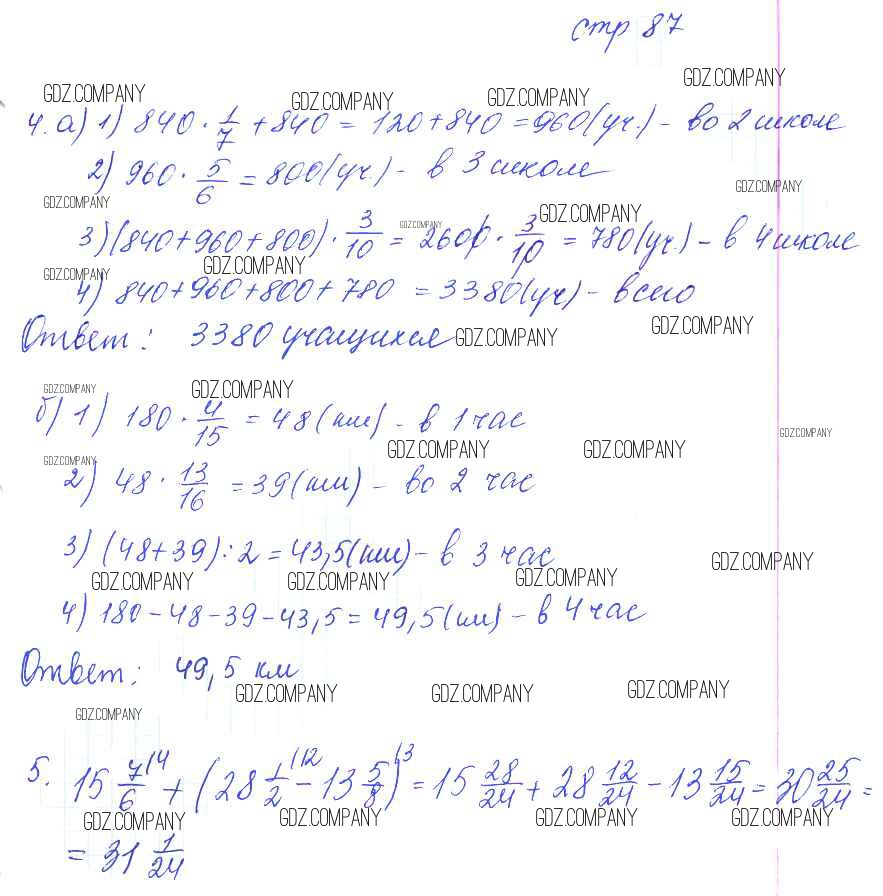 стр 87
GDZ.COMPANY GDZ.COMPANY GDZ.COMPANY GDZ.COMPANY
4. а) 1) 840 · 1/7 + 840 = 120 + 840 = 960 (уч.) - во 2 школе
2) 960 · 5/6 = 800 (уч.) - в 3 школе
GDZ.COMPANY GDZ.COMPANY GDZ.COMPANY GDZ.COMPANY
3) (840+960+800) · 3/10 = 2600 · 3/10 = 780 (уч.) - в 4 школе
GDZ.COMPANY GDZ.COMPANY
4) 840+960+800+780 = 3380 (уч) - всего
Ответ: 3380 учащихся
GDZ.COMPANY GDZ.COMPANY
GDZ.COMPANY GDZ.COMPANY
б) 1) 180 · 4/15 = 48 (км) - в 1 час
GDZ.COMPANY GDZ.COMPANY GDZ.COMPANY GDZ.COMPANY
2) 48 · 13/16 = 39 (км) - во 2 час
3) (48+39) : 2 = 43,5 (км) - в 3 час
GDZ.COMPANY GDZ.COMPANY GDZ.COMPANY GDZ.COMPANY
4) 180 - 48 - 39 - 43,5 = 49,5 (км) - в 4 час
Ответ: 49,5 км
GDZ.COMPANY GDZ.COMPANY GDZ.COMPANY
GDZ.COMPANY
5. 15 7/6 |4 + (28 1/2 |12 - 13 5/8) |3 = 15 28/24 + 28 12/24 - 13 15/24 = 30 25/24 =
GDZ.COMPANY GDZ.COMPANY GDZ.COMPANY GDZ.COMPANY
= 31 1/24